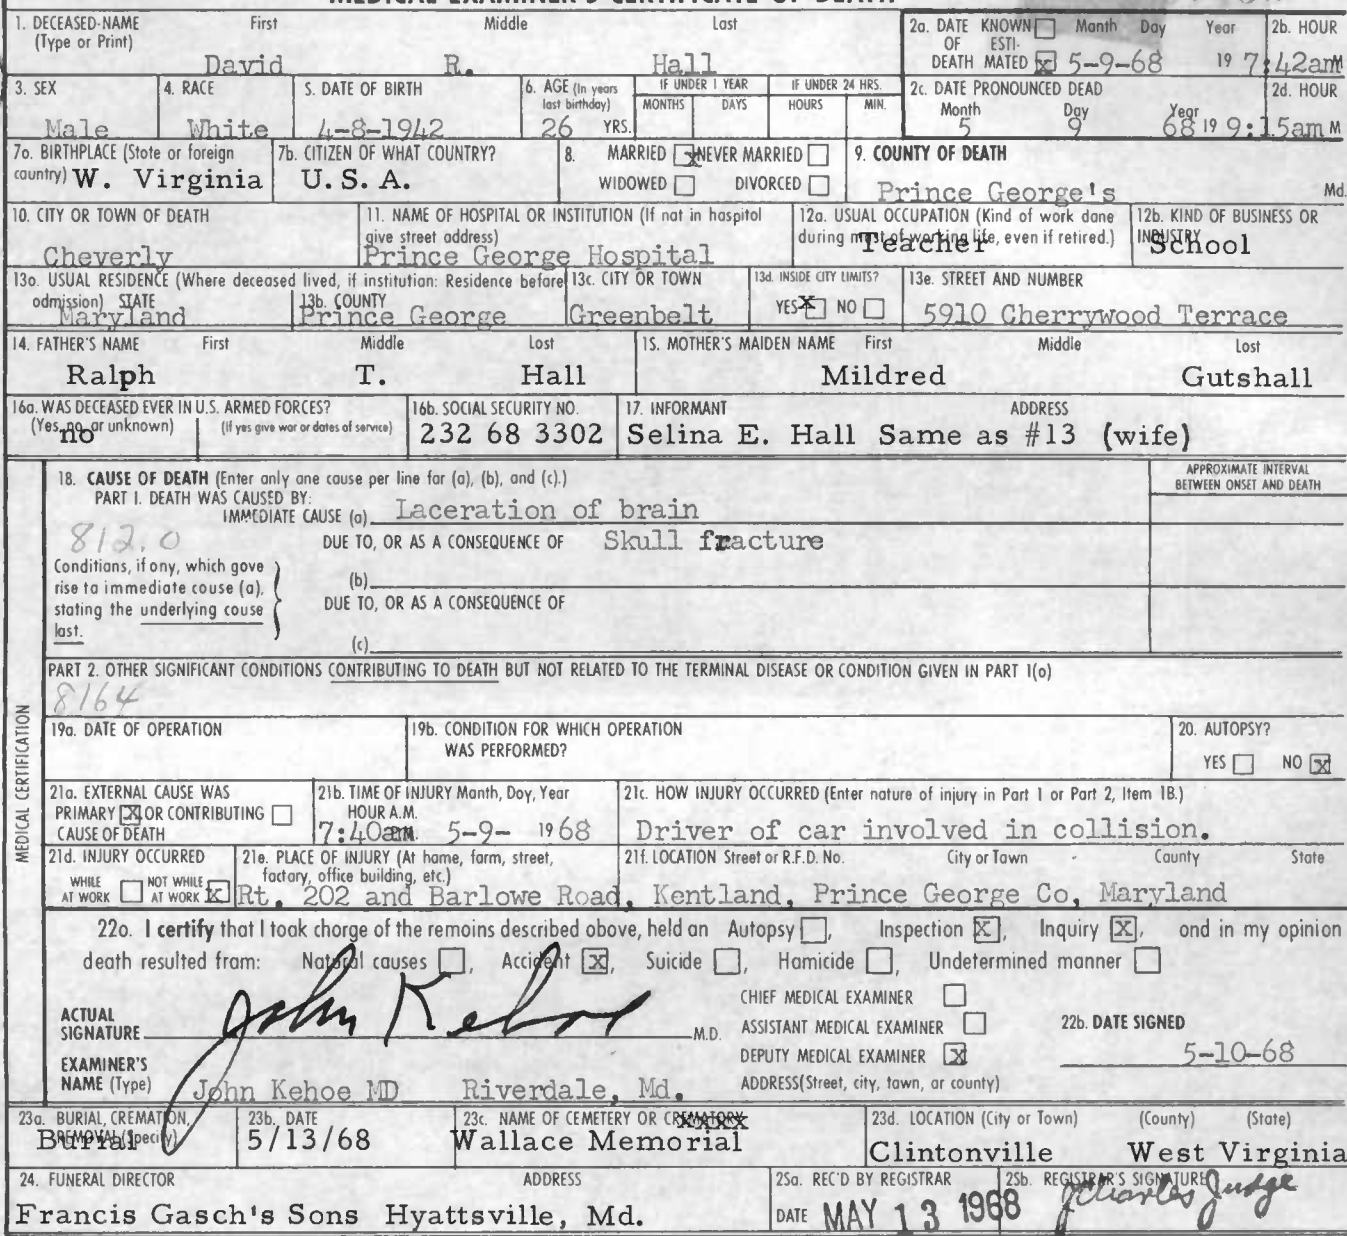 MEDICAL EXAMINER'S CERTIFICATE OF DEATH
1. DECEASED-NAME First Middle Last
(Type or Print)
David R. Hall
2a. DATE KNOWN Month Day Year
OF ESTI-
DEATH MATED X 5-9-68 19
2b. HOUR
7:42am M
3. SEX
Male
4. RACE
White
5. DATE OF BIRTH
4-8-1942
6. AGE (In years last birthday)
26 YRS.
IF UNDER 1 YEAR
MONTHS DAYS
IF UNDER 24 HRS.
HOURS MIN.
2c. DATE PRONOUNCED DEAD
Month Day Year
5 9 68 19
2d. HOUR
9:15am M
7a. BIRTHPLACE (State or foreign
country) W. Virginia
7b. CITIZEN OF WHAT COUNTRY?
U.S.A.
8. MARRIED X NEVER MARRIED
WIDOWED DIVORCED
9. COUNTY OF DEATH
Prince George's Md.
10. CITY OR TOWN OF DEATH
Cheverly
11. NAME OF HOSPITAL OR INSTITUTION (If not in hospital
give street address)
Prince George Hospital
12a. USUAL OCCUPATION (Kind of work done
during most of working life, even if retired.)
Teacher
12b. KIND OF BUSINESS OR
INDUSTRY
School
13a. USUAL RESIDENCE (Where deceased lived, if institution: Residence before
admission) STATE
Maryland
13b. COUNTY
Prince George
13c. CITY OR TOWN
Greenbelt
13d. INSIDE CITY LIMITS?
YES X NO
13e. STREET AND NUMBER
5910 Cherrywood Terrace
14. FATHER'S NAME First Middle Last
Ralph T. Hall
15. MOTHER'S MAIDEN NAME First Middle Last
Mildred Gutshall
16a. WAS DECEASED EVER IN U.S. ARMED FORCES?
(Yes, no, or unknown) (If yes give war or dates of service)
no
16b. SOCIAL SECURITY NO.
232 68 3302
17. INFORMANT ADDRESS
Selina E. Hall Same as #13 (wife)
18. CAUSE OF DEATH (Enter only one cause per line for (a), (b), and (c).)
APPROXIMATE INTERVAL
BETWEEN ONSET AND DEATH
PART I. DEATH WAS CAUSED BY:
IMMEDIATE CAUSE (a) Laceration of brain
812.0
DUE TO, OR AS A CONSEQUENCE OF Skull fracture
Conditions, if any, which gave
rise to immediate cause (a),
stating the underlying cause
last.
(b)
DUE TO, OR AS A CONSEQUENCE OF
(c)
PART 2. OTHER SIGNIFICANT CONDITIONS CONTRIBUTING TO DEATH BUT NOT RELATED TO THE TERMINAL DISEASE OR CONDITION GIVEN IN PART 1(a)
8164
MEDICAL CERTIFICATION
19a. DATE OF OPERATION
19b. CONDITION FOR WHICH OPERATION
WAS PERFORMED?
20. AUTOPSY?
YES NO X
21a. EXTERNAL CAUSE WAS
PRIMARY X OR CONTRIBUTING
CAUSE OF DEATH
21b. TIME OF INJURY Month, Day, Year
HOUR A.M.
7:40am. 5-9- 1968
21c. HOW INJURY OCCURRED (Enter nature of injury in Part 1 or Part 2, Item 18.)
Driver of car involved in collision.
21d. INJURY OCCURRED
WHILE AT WORK NOT WHILE AT WORK X
21e. PLACE OF INJURY (At home, farm, street,
factory, office building, etc.)
21f. LOCATION Street or R.F.D. No. City or Town County State
Rt. 202 and Barlowe Road, Kentland, Prince George Co, Maryland
22a. I certify that I took charge of the remains described above, held an Autopsy , Inspection X, Inquiry X, and in my opinion
death resulted from: Natural causes , Accident X, Suicide , Homicide , Undetermined manner
ACTUAL
SIGNATURE John Kehoe M.D.
CHIEF MEDICAL EXAMINER
ASSISTANT MEDICAL EXAMINER
DEPUTY MEDICAL EXAMINER X
22b. DATE SIGNED
5-10-68
EXAMINER'S
NAME (Type) John Kehoe MD Riverdale, Md.
ADDRESS(Street, city, town, or county)
23a. BURIAL, CREMATION,
REMOVAL (Specify)
Burial
23b. DATE
5/13/68
23c. NAME OF CEMETERY OR CREMATORY
Wallace Memorial
23d. LOCATION (City or Town) (County) (State)
Clintonville West Virginia
24. FUNERAL DIRECTOR ADDRESS
Francis Gasch's Sons Hyattsville, Md.
25a. REC'D BY REGISTRAR
DATE MAY 13 1968
25b. REGISTRAR'S SIGNATURE
J Charles Judge